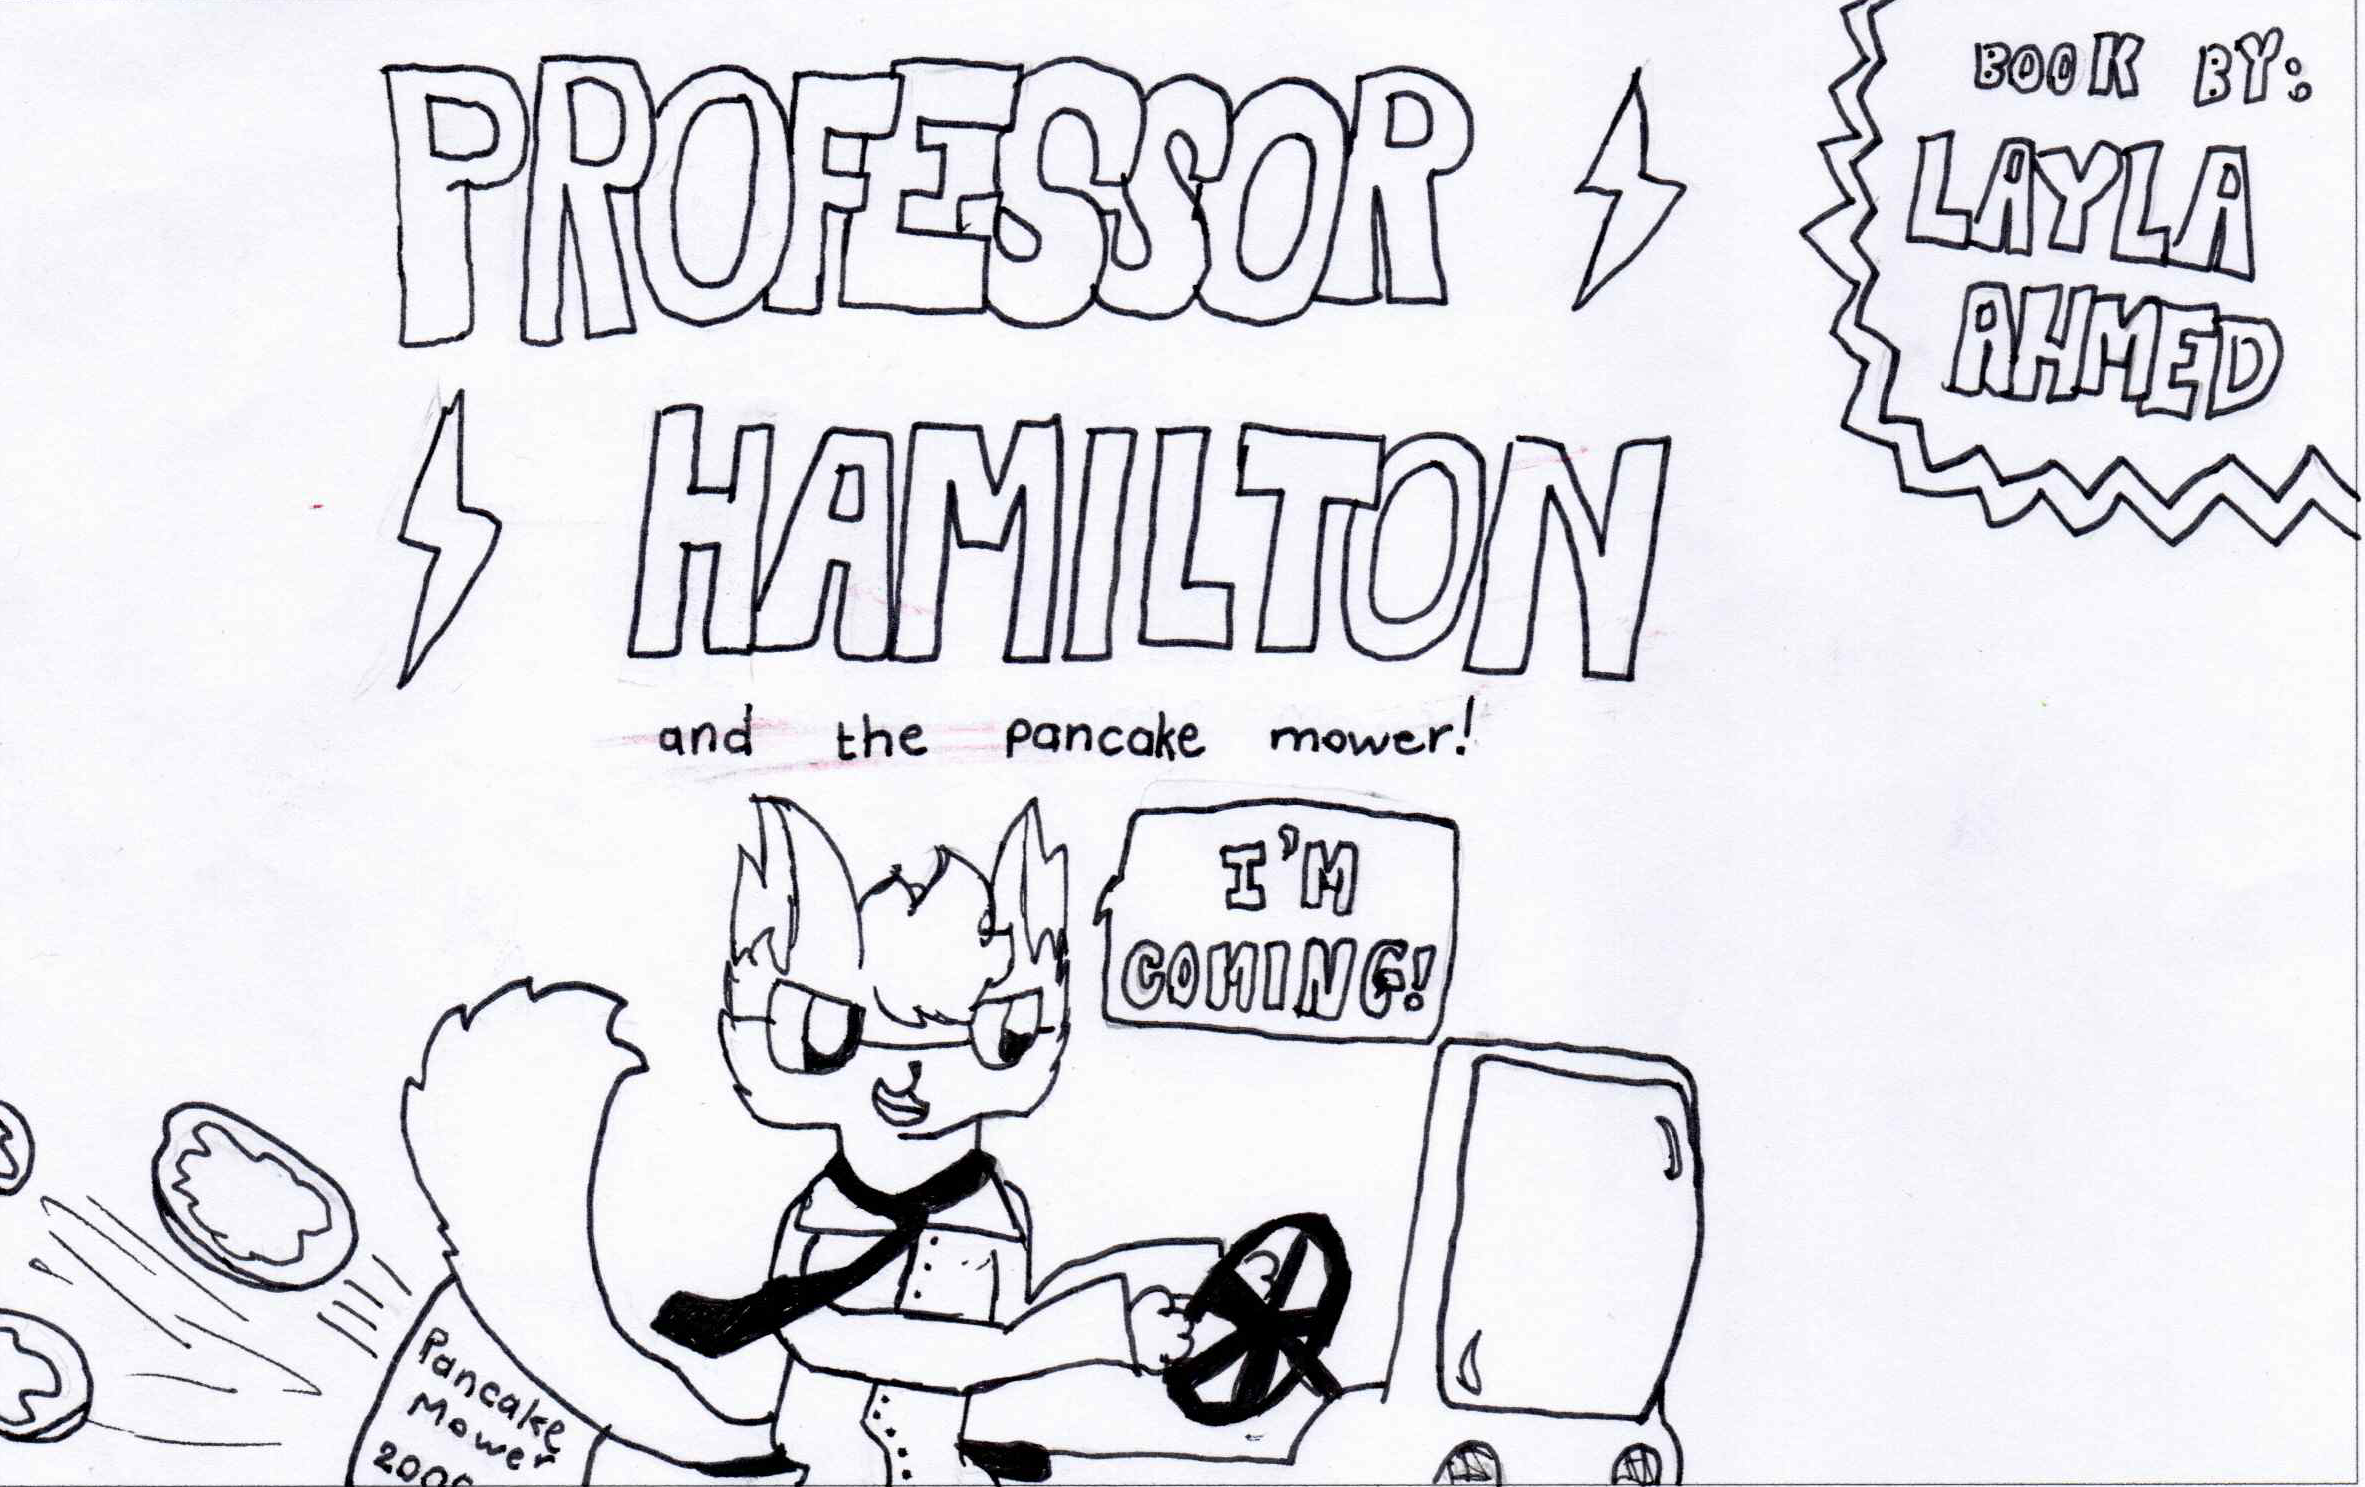 PROFESSOR
HAMILTON
and the pancake mower!
BOOK BY:
LAYLA
AHMED
I'M
COMING!
Pancake
Mower
2000